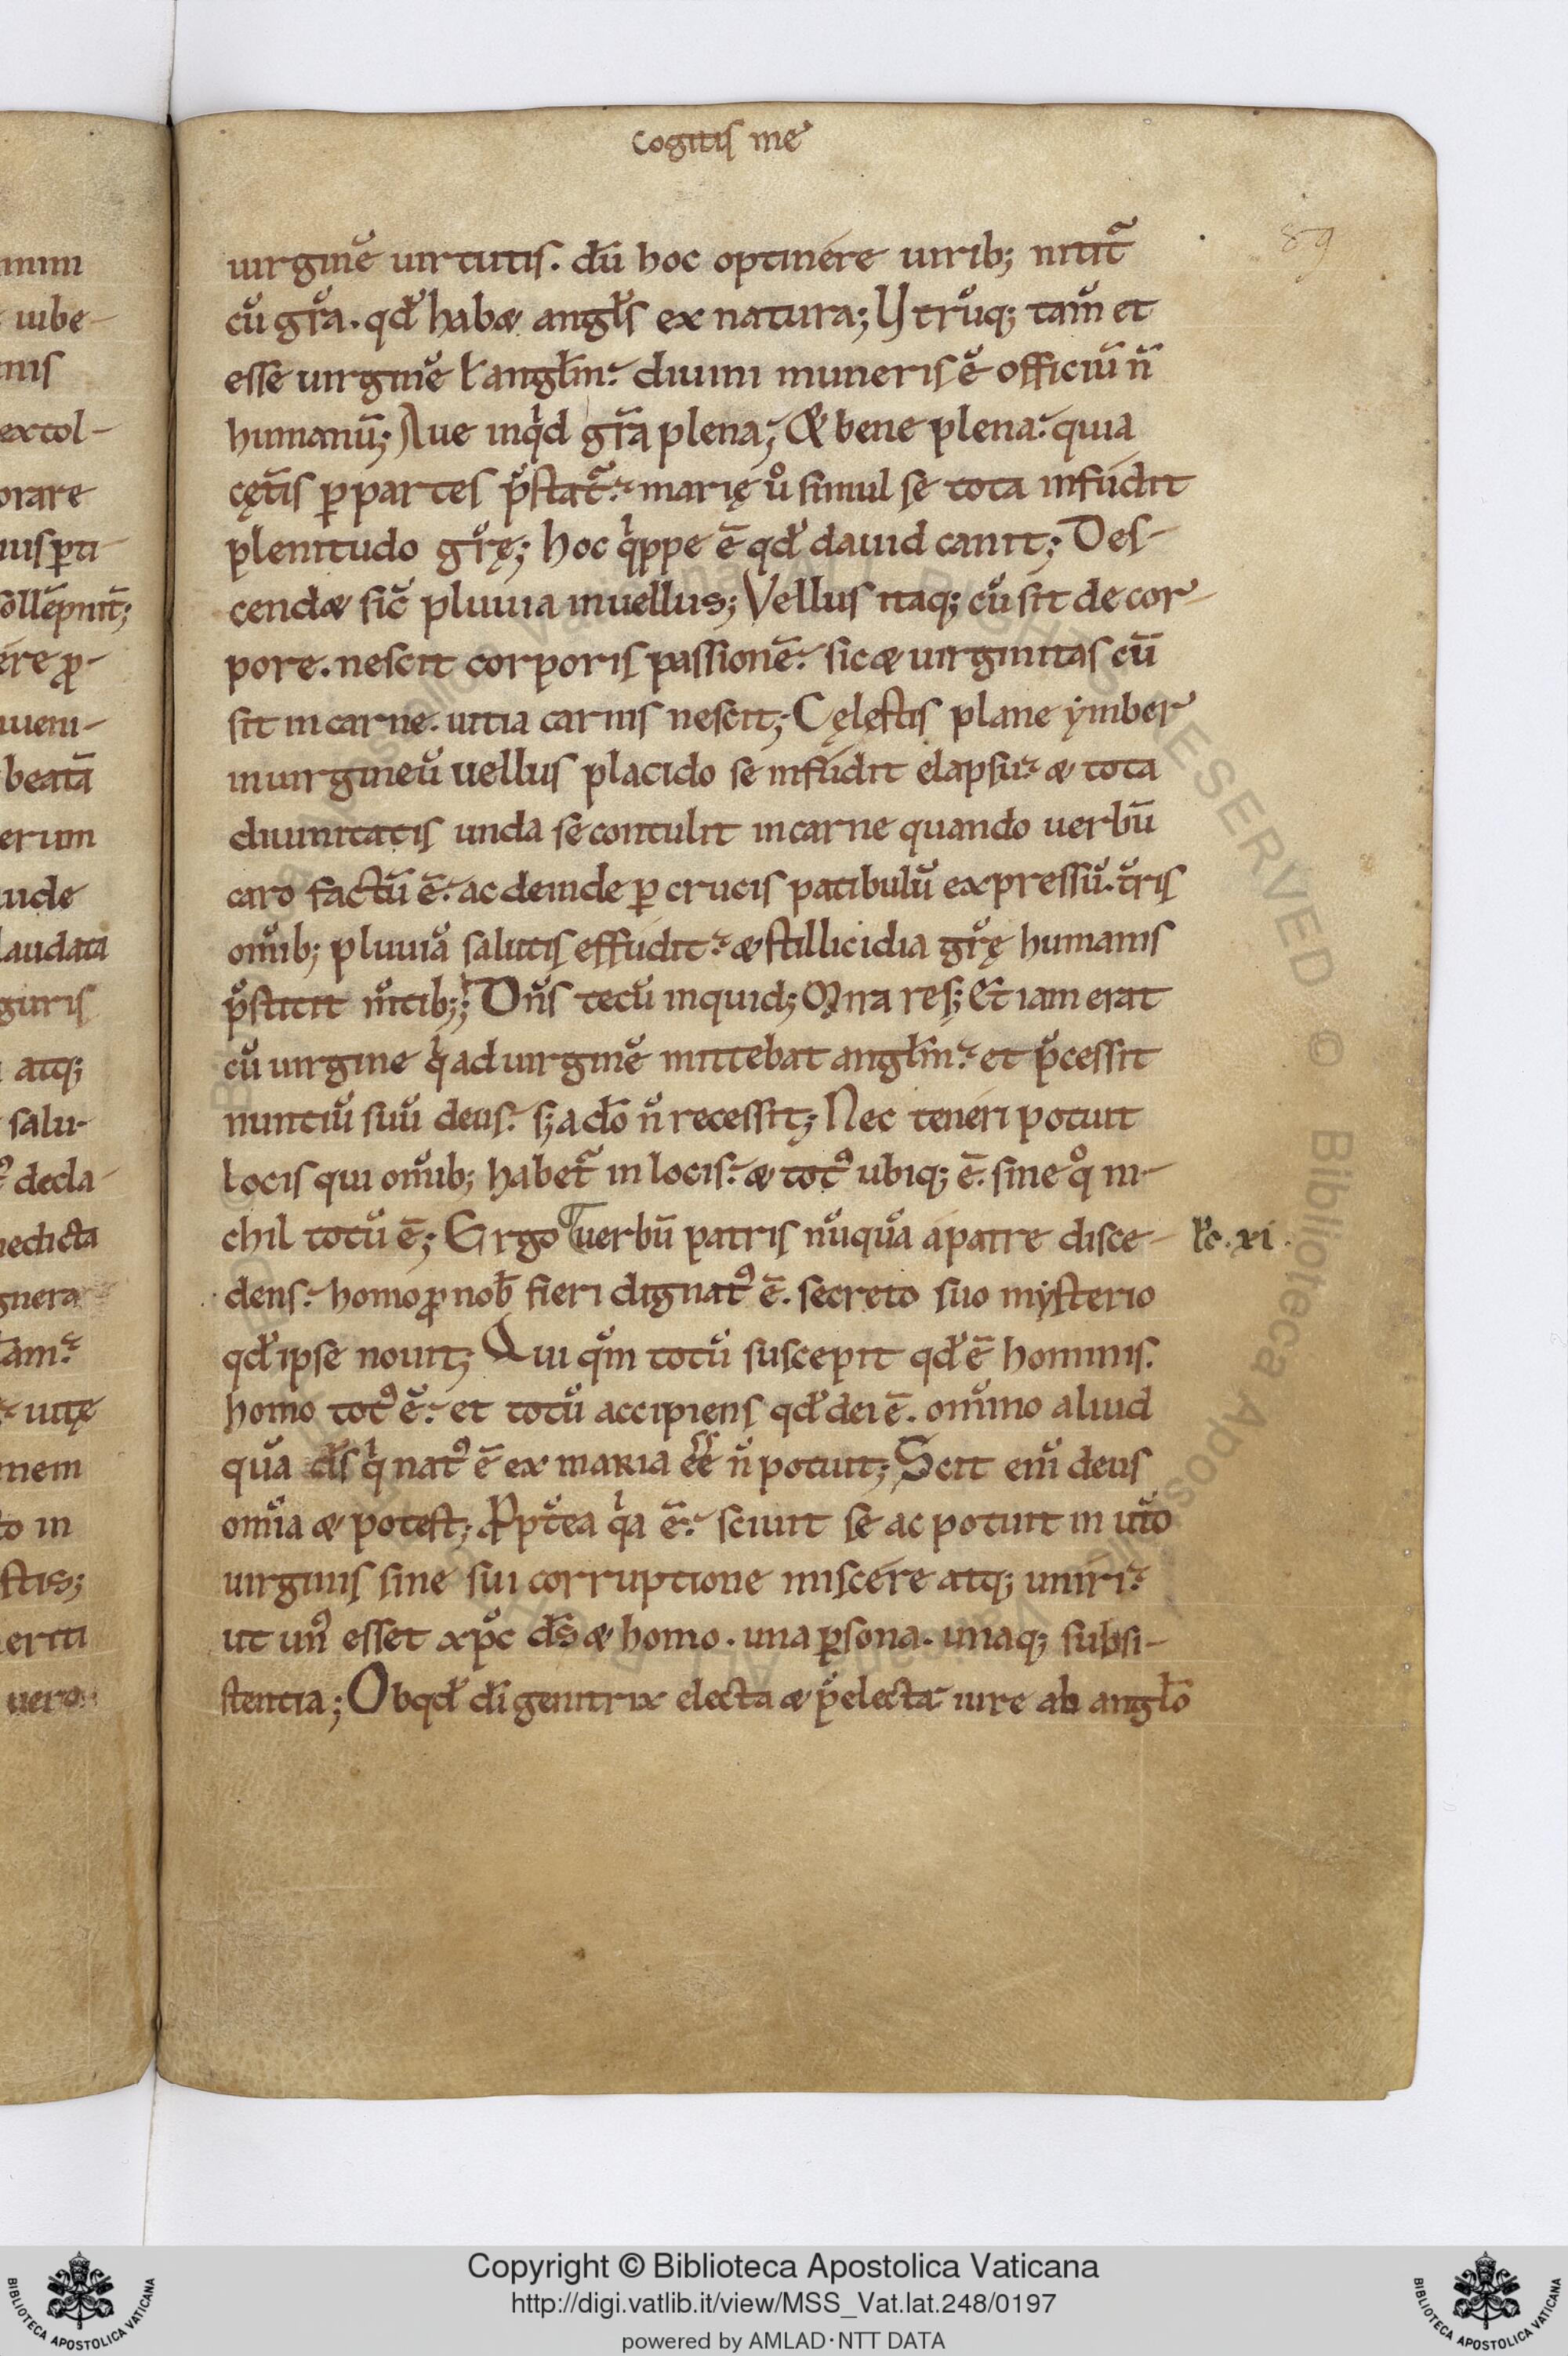 Cogitis me
89
uirginē uirtutis. dū hoc optinére uirib; nitit᷑
cū gr̄a. qđ habæ angl̄s ex natura; Vtrūq; tam̄ et
esse uirginē ł angl̄m. diuini muneris ē officiū n̄
humanū; Aue inqͥd gr̄a plena; Et bene plena. quia
cęt̄is ꝑ partes p̄stat᷑. marię ů simul se tota infúdit
plenitudo gr̄ę; hoc qͥppe ē qđ dauid canit; Des-
cendæ sic̄ pluuia inuellus; Vellus itaq; cū sit de cor-
pore. nescit corporis passionē. sicæ uirginitas cū
sit in carne. uitia carnis nescit; Cęlęstis plane ymber
inuirgineū uellus placido se infúdit elapsu. æ tota
diuinitatis unda se contulit incarne quando uerbū
caro factū ē. ac deinde ꝑ crucis patibulū expressū. t̄ris
om̄ib; pluuiā salutis effúdit. æ stillicidia gr̄ę humanis
p̄stitit m̄tib; Dn̄s tecū inquid; Mira res; Et iam erat
cū uirgine qͥ ad uirginē mittebat angl̄m. et p̄cessit
nuntiū suū deus. s; a dō n̄ recessit; Nec tenéri potuit
locis qui om̄ib; habet᷑ in locis. æ totꝰ ubiq; ē. sine qͦ ni-
chil totū ē; Ergo uerbū patris nūquā apatre disce-
łc. xi.
dens. homo ꝓ nob̄ fieri dignatꝰ ē. secreto suo mysterio
qđ ipse nouit; Qui qm̄ totū suscepit qđ ē hominis.
homo totꝰ ē. et totū accipiens qđ dei ē. om̄ino aliud
quā ds̄ qͥ natꝰ ē ex maria ee̅ n̄ potuit; Scit eni̅ deus
om̄ia æ potest; Ꝓpt̄ea qͥa ē. sciuit se ac potuit in ut̄o
uirginis sine sui corruptione miscére atq; uniri.
ut unꝰ esset xp̄c ds̄ æ homo. una ꝑsona. unaq; subsi-
stentia; Obqđ dī genitrix electa æ p̄electa iure ab angl̄o
iube-
nis
extol-
orare
beatā
erum
laudata
guris
atq;
salu-
decla-
uitę
nem
to in
stis;
eriti
uero
Copyright © Biblioteca Apostolica Vaticana
http://digi.vatlib.it/view/MSS_Vat.lat.248/0197
powered by AMLAD·NTT DATA
BIBLIOTECA APOSTOLICA VATICANA
BIBLIOTECA APOSTOLICA VATICANA